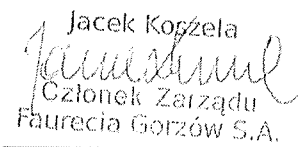 Jacek Koszela
Członek Zarządu
Faurecia Gorzów S.A.